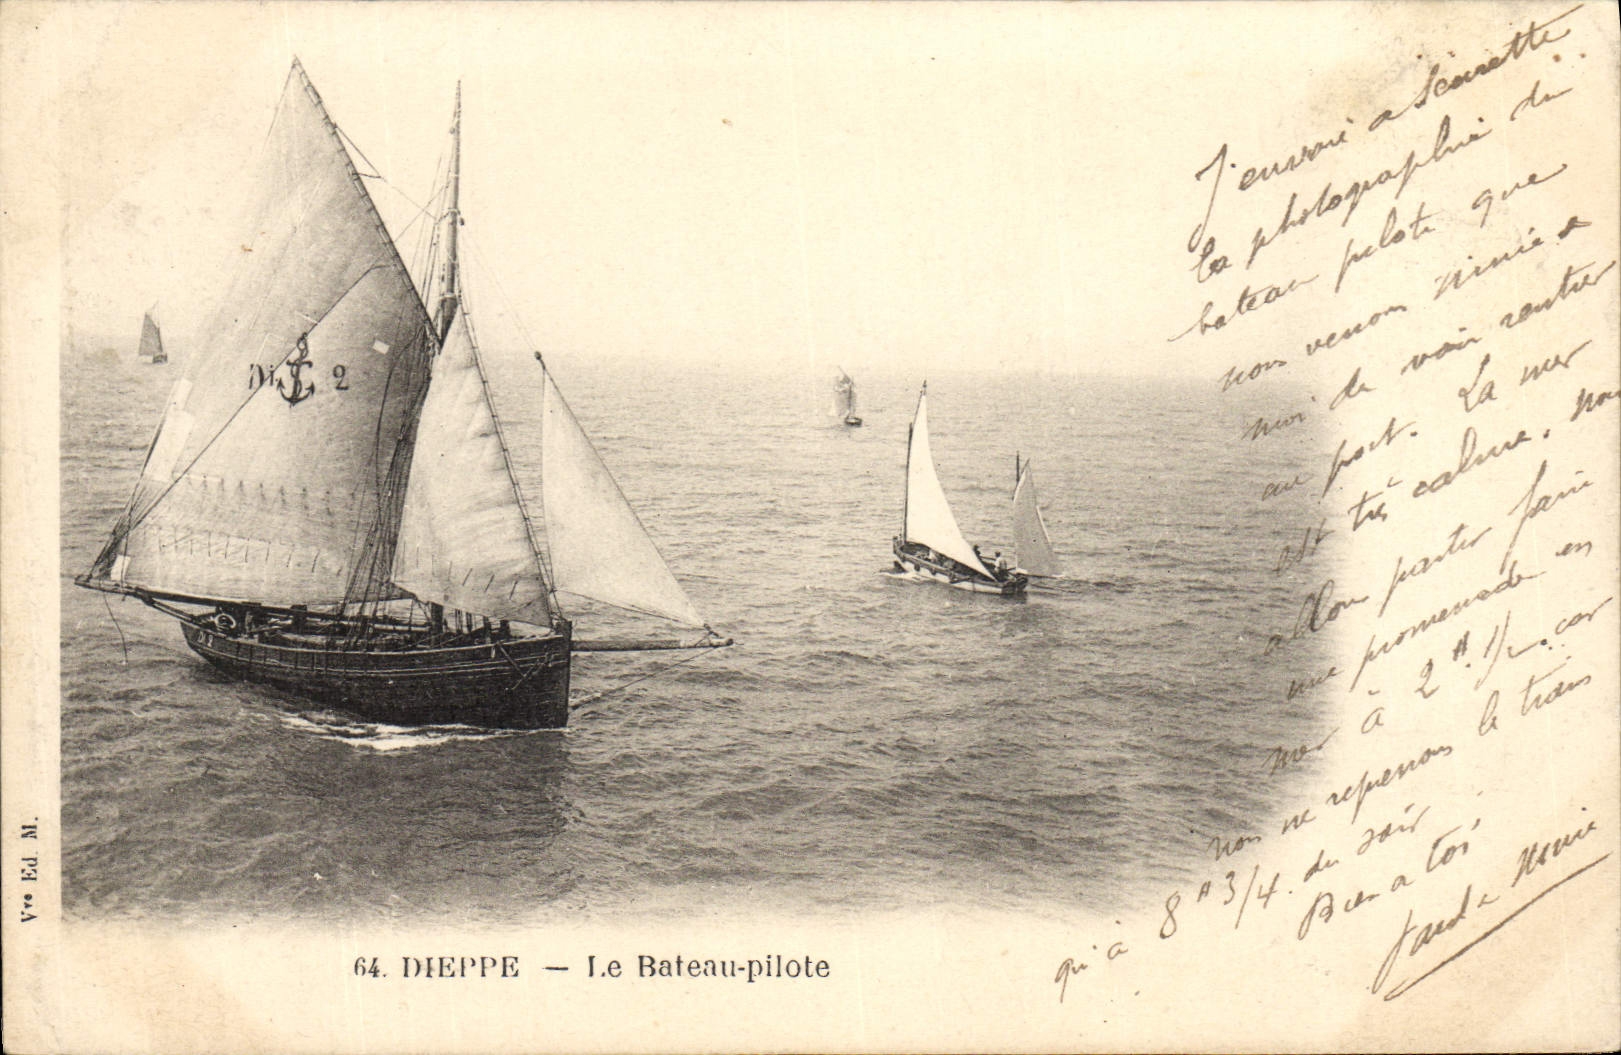 J'envoie a Sœurette
la photographie du
bateau pilote que
nous venons Ninie &
moi de voir rentrer
au port. La mer
est très calme. Nous
allons partir faire
une promenade en
mer à 2 H. 1/2. car
nous ne reprenons le train
qu'à 8 H 3/4. du soir
Bien a toi
Ninie
Di 2
DI 2
64. DIEPPE — Le Bateau-pilote
Vve Ed. M.